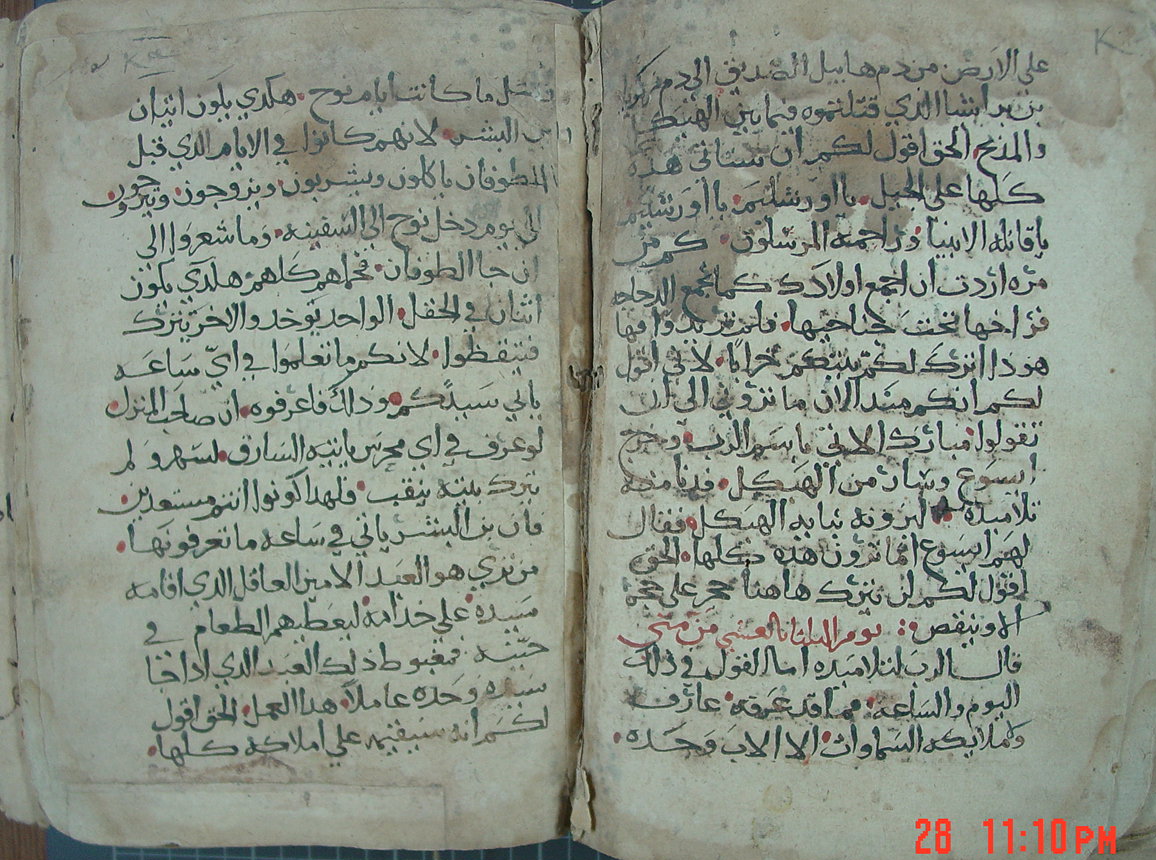 K
على الارض من دم هابيل الصديق الى دم زكريا
بن برا شيا الذي قتلتموه فيما بين الهيكل
والمذبح. الحق اقول لكم ان ستاتي هذه
كلها على الجيل. يا اورشليم يا اورشليم
يا قاتله الانبيا وراجمه المرسلون. كم من
مره اردت ان اجمع اولادك كما تجمع الدجاجه
فراخها تحت جناحيها. فلم تريدوا فها
هودا اترك لكم بيتكم خرابا. لاني اقول
لكم انكم منذ الان ما تروني الى ان
تقولوا مبارك الاتي باسم الرب. وخرج
ايسوع وسار من الهيكل. فدنا منه
تلاميذه ليروته بنايه الهيكل. فقال
لهم ايسوع اما ترون هذه كلها. الحق
اقول لكم لن يترك هاهنا حجر على حجر
الا وينقص: يوم الثلثا بالعشي من متى
قال الرب لتلاميذه اما القول في ذلك
اليوم والساعه. فما قد عرفه عارف
ولا ملايكه السماوات. الا الاب وحده.
ومثل ما كانت ايام نوح. هكدي يكون اتيان
بن البشر. لانهم كانوا في الايام الذي قبل
الطوفان ياكلون ويشربون ويزوجون ويتزوجون.
الى يوم دخل نوح الى السفينه. وما شعروا الى
ان جا الطوفان. فمحاهم كلهم هكدي يكون
اثنان في الحقل. الواحد يوخد والاخر يترك
فتيقظوا. لانكم ما تعلموا في اي ساعه
ياتي سيدكم. وذلك فاعرفوه. ان صاحب المنزل
لو عرف في اي محرس ياتيه السارق. لسهر ولم
يترك بيته ينقب. فلهدا كونوا انتم مستعدين.
فان بن البشر ياتي في ساعه ما تعرفونها.
من تري هو العبد الامين العاقل الذي اقامه
سيده على خدامه. ليعطيهم الطعام في
حينه. فمغبوط ذلك العبد الذي اذا جا
سيده وجده عاملا. هدا العمل. الحق اقول
لكم انه سيقيمه على املاكه كلها.
28 11:10 PM